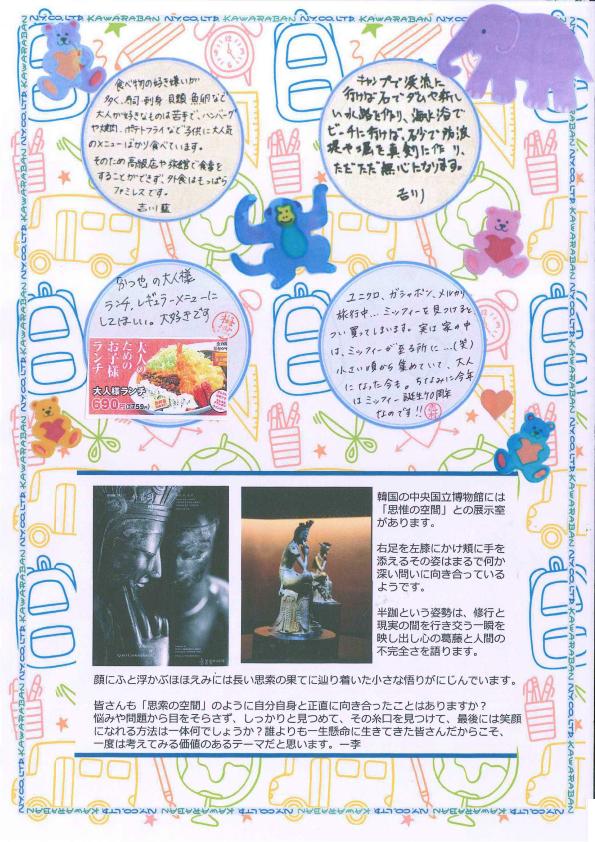 N.Y.CO.LTD KAWARABAN
食べ物の好き嫌いが
多く、寿司、刺身、貝類、魚卵など
大人が好きなものは苦手で、ハンバーグ
や焼肉、ポテトフライなど子供に大人気
のメニューばかり食べています。
そのため高級店や旅館で食事を
することができず、外食はもっぱら
ファミレスです。
吉川 藍
キャンプで渓流に
行けば石でダムや新し
い水路を作り、海水浴で
ビーチに行けば、砂で防波
堤や堀を真剣に作り、
ただただ無心になります。
吉川
かつ也の大人様
ランチ。レギュラーメニューに
してほしい。大好きです
大人の
ための
お子様
ランチ
大人様ランチ
690円
ユニクロ、ガシャポン、メルカリ
旅行中…ミッフィーを見つけると
つい買ってしまいます。実は家の中
は、ミッフィーが至る所に…(笑)
小さい頃から集めていて、大人
になった今も。ちなみに今年
はミッフィー誕生70周年
なのです!!
韓国の中央国立博物館には
「思惟の空間」との展示室
があります。
右足を左膝にかけ頬に手を
添えるその姿はまるで何か
深い問いに向き合っている
ようです。
半跏という姿勢は、修行と
現実の間を行き交う一瞬を
映し出し心の葛藤と人間の
不完全さを語ります。
顔にふと浮かぶほほえみには長い思索の果てに辿り着いた小さな悟りがにじんでいます。
皆さんも「思索の空間」のように自分自身と正直に向き合ったことはありますか?
悩みや問題から目をそらさず、しっかりと見つめて、その糸口を見つけて、最後には笑顔
になれる方法は一体何でしょうか?誰よりも一生懸命に生きてきた皆さんだからこそ、
一度は考えてみる価値のあるテーマだと思います。ー李